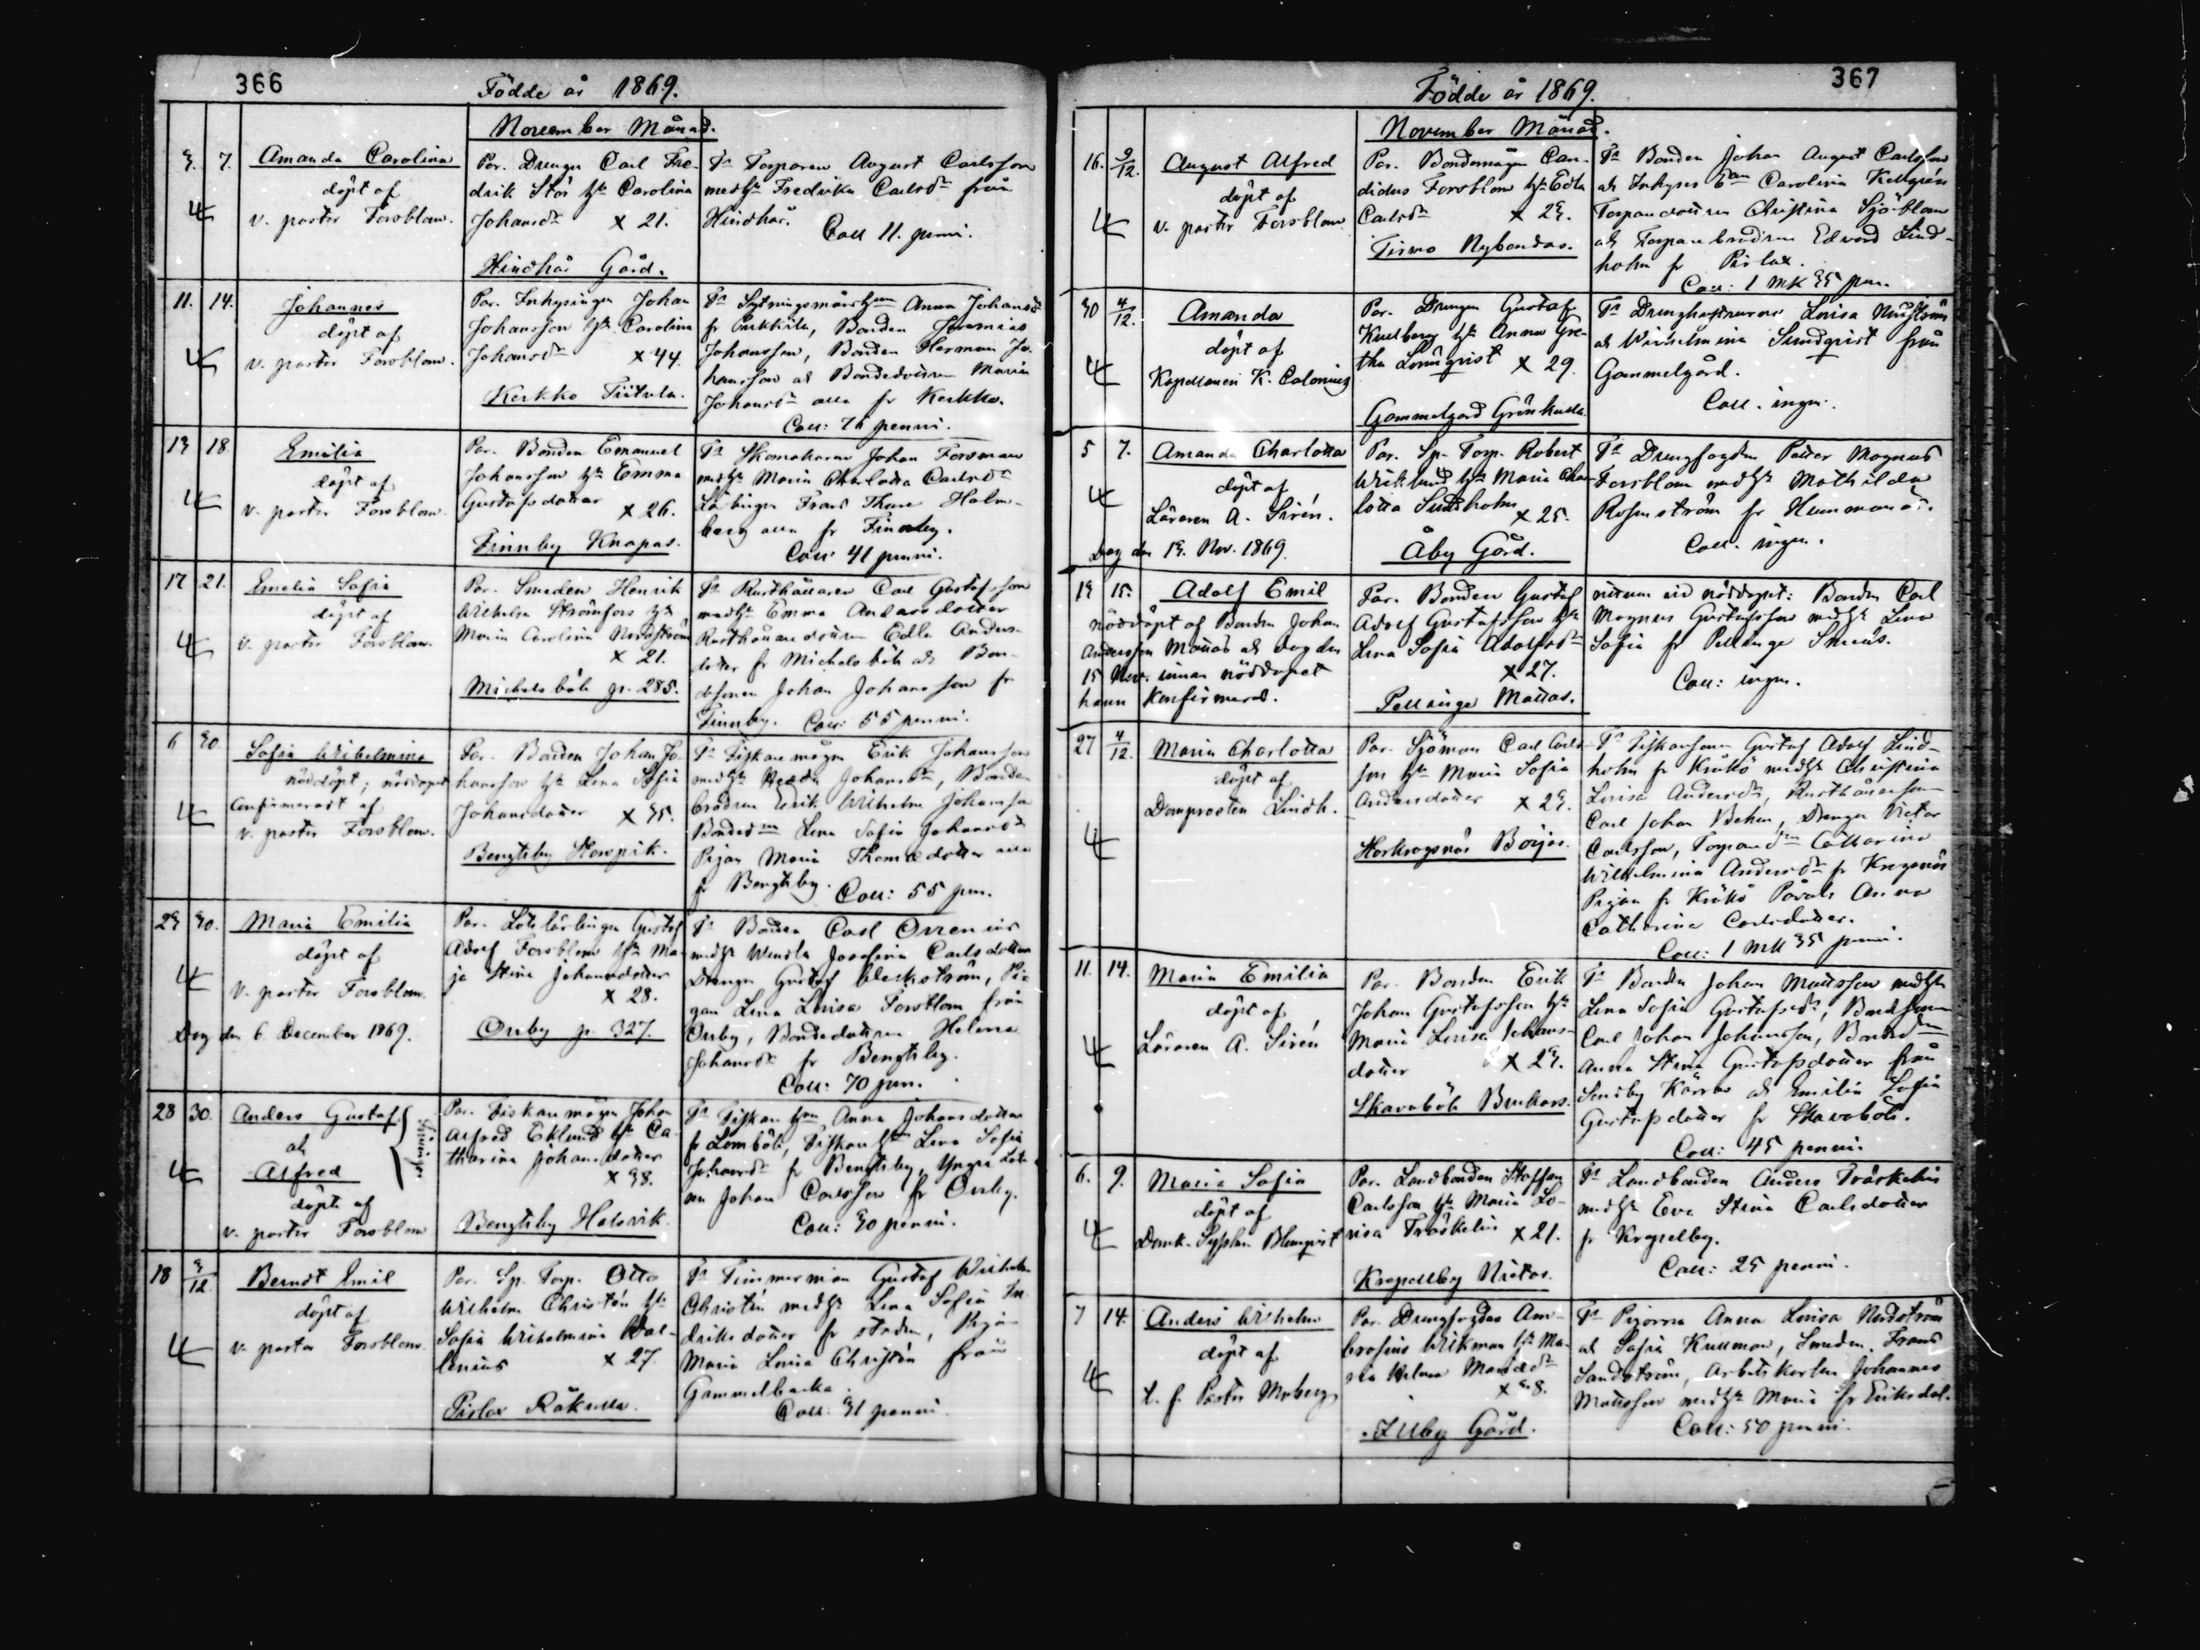 366
Födde år 1869.
November Månad.
3. 7. Amanda Carolina
döpt af
v. pastor Forsblom.
Par. Drengen Carl Fre-
drik Stor h:u Carolina
Johansd:r x 21.
Hindhår Gård.
F:r Torparen August Carlsson
med h:u Fredrika Carlsd:r från
Hindhår.
Coll 11. penni.
11. 14. Johannes
döpt af
v. pastor Forsblom.
Par. Inhysingen Johan
Johansson h:u Carolina
Johansd:r x 44.
Kerkko Tiitola.
Anna Johansd:r
Bonden Jeremias
Johansson, Bonden Herman Jo-
hansson och Bondedottren Maria
Johansd:r alla fr Kerkko.
Coll: 76 penni.
13 18 Emilia
döpt af
v. pastor Forsblom.
Par. Bonden Emanuel
Johansson h:u Emma
Gustafsdotter x 26.
Finnby Knapas.
F:r Skomakaren Johan Forsman
med h:u Maria Charlotta Carlsd:r
Lärlingen Frans Thure Holm-
berg alla fr Finnby.
Coll: 41 penni.
17 21. Emelia Sofia
döpt af
v. pastor Forsblom.
Par. Smeden Henrik
Wilhelm Strömfors h:u
Maria Carolina Nordström
x 21.
Michelsböle p. 285.
F:r Rusthållaren Carl Gustafsson
med h:u Emma Andersdotter
Rusthållaredottren Edla Anders-
dotter fr Michelsböle och Bon-
desonen Johan Johansson fr
Finnby. Coll: 55 penni.
6 30. Sofia Wilhelmina
nöddöpt; nöddopet
Confirmeradt af
v. pastor Forsblom.
Par. Bonden Johan Jo-
hansson h:u Lena Sofia
Johansdotter x 35.
Bengtsby Storpik.
F:r Fiskaremågen Erik Johansson
med h:u Hedda Johansd:r, Bonde-
brodren Erik Wilhelm Johansson
Lena Sofia Johansd:r
Pigan Maria Thomasdotter alla
fr Bengtsby. Coll: 55 pen.
23 30. Maria Emilia
döpt af
v. pastor Forsblom.
Dog den 6 December 1869.
Par. Lotslärlingen Gustaf
Adolf Forsblom h:u Ma-
ja Stina Johansdotter
x 28.
Onby p. 327.
F:r Bonden Carl Orrenius
med h:u Wendla Josefina Carlsdotter
Drengen Gustaf Weckström, Pi-
gan Lena Lovisa Forsblom från
Onby, Bondedottren Helena
Johansd:r fr Bengtsby.
Coll: 70 pen.
28 30. Anders Gustaf
och
Alfred
döpte af
v. pastor Forsblom
Par. Fiskaremågen Johan
Alfred Eklund h:u Ca-
tharina Johansdotter
x 38.
Bengtsby Halsvik.
Anna Johansdotter
fr Lomböle, Lena Sofia
Johansd:r fr Bengtsby, Yngre Lots-
en Johan Carlsson fr Onby.
Coll: 30 penni.
18 3/12 Berndt Emil
döpt af
v. pastor Forsblom.
Par. Sp. Torp. Otto
Wilhelm Christén h:u
Sofia Wilhelmina Wal-
lenius x 27.
Pirlax Råkulla.
F:r Timmerman Gustaf Wilhelm
Christén med h:u Lena Sofia In-
driksdotter fr staden, Pigan
Maria Lovisa Christén från
Gammelbacka.
Coll: 31 penni.
Födde år 1869.
367
November Månad.
16. 9/12. August Alfred
döpt af
v. pastor Forsblom.
Par. Bondemågen Can-
didus Forsblom h:u Edla
Carlsd:r x 23.
Tirmo Nybondas.
F:r Bonden Johan August Carlsson
och Inhyses Carolina Kellgrén
Torparedottren Christina Sjöblom
och Torparebrodren Edvard Lind-
holm fr Pirlax.
Coll: 1 mk 35 pen.
30 4/12. Amanda
döpt af
Kapellanen K. Calonius
Par. Drengen Gustaf
Kullberg h:u Anna Gre-
tha Lönnqvist x 29.
Gammelgård Grönkulla.
Lovisa
och Wilhelmina Sundqvist från
Gammelgård.
Coll. ingen.
5 7. Amanda Charlotta
döpt af
Läraren A. Sirén.
Dog den 13. Nov. 1869.
Par. Sp. Torp. Robert
Wicklund h:u Maria Char-
lotta Sundholm x 25.
Åby Gård.
F:r Drengfogden Petter Magnus
Forsblom med h:u Mathilda
Rosenström fr Hummarö.
Coll. ingen.
13 15. Adolf Emil
nöddöpt af Bonden Johan
Andersson Mattas och dog den
15 Nov. innan nöddopet
hann Konfirmeras.
Par. Bonden Gustaf
Adolf Gustafsson h:u
Lena Sofia Adolfsd:r
x 27.
Pellinge Mattas.
vittnen vid nöddopet: Bonden Carl
Magnus Gustafsson med h:u Lena
Sofia fr Pellinge Smeds.
Coll: ingen.
27 4/12. Maria Charlotta
döpt af
Domprosten Lindh.
Par. Sjöman Carl Carls-
son h:u Maria Sofia
Andersdotter x 23.
Horkrogsnäs Börjas.
F:r Fiskaresonen Gustaf Adolf Lind-
holm fr Kråkö med h:u Christina
Lovisa Andersd:r, Rusthållareson
Carl Johan Behm, Drengen Victor
Carlsson, Catharina
Wilhelmina Andersd:r fr Krogsnäs
Pigan fr Kråkö Påvals Anna
Catharina Carlsdotter.
Coll: 1 mk 35 penni.
11. 14. Maria Emilia
döpt af
Läraren A. Sirén
Par. Bonden Erik
Johan Gustafsson h:u
Maria Lovisa Johans-
dotter x 23.
Skavaböle Benkars.
F:r Bonden Johan Mattsson med h:u
Lena Sofia Gustafsd:r, Bondsonen
Carl Johan Johansson,
Anna Stina Gustafsdotter från
Sondby Kärras och Emilia Sofia
Gustafsdotter fr Skavaböle.
Coll: 45 penni.
6. 9. Maria Sofia
döpt af
Domk. Blomqvist
Par. Landbonden Staffan
Carlsson h:u Maria Lo-
visa Träskelin x 21.
Kroppelby Nietas.
F:r Landbonden Anders Träskelin
med h:u Eva Stina Carlsdotter
fr Kroppelby.
Coll: 25 penni.
7 14. Anders Wilhelm
döpt af
t. f. Pastor Moberg
Par. Drengfogden Am-
brosius Wikman h:u Ma-
ria Helena
Illby Gård.
F:r Pigorna Anna Lovisa Nordström
och Sofia Kullman, Smeden Frans
Sandström, Arbetskarlen Johannes
Mattsson med h:u Maria fr Eriksdal.
Coll: 50 penni.